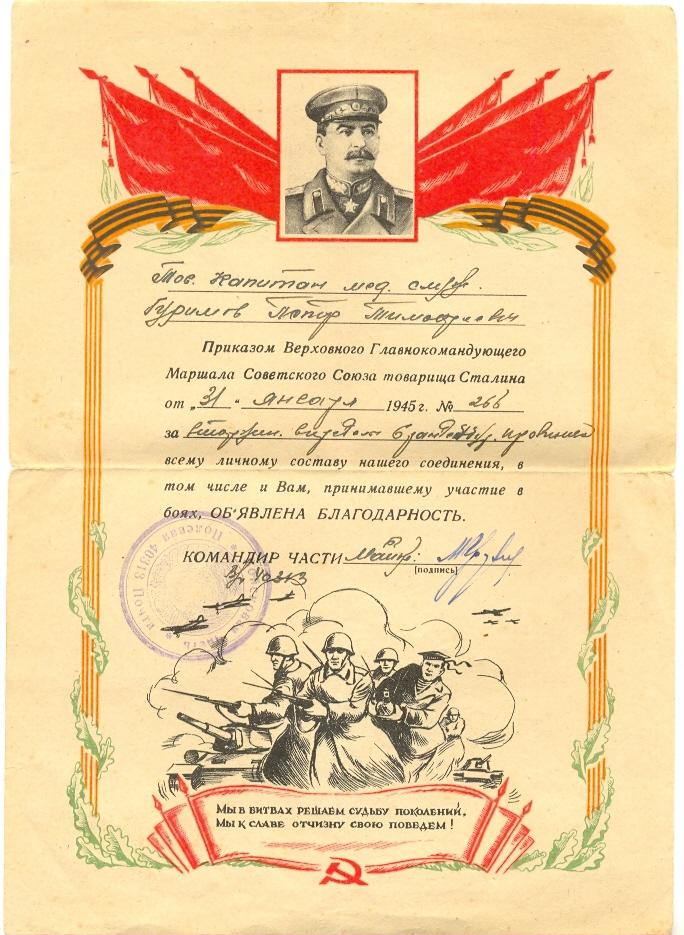 Тов. Капитан мед. служ.
Гуримов Петр Тимофеевич
Приказом Верховного Главнокомандующего
Маршала Советского Союза товарища Сталина
от „31“ января 1945 г. № 266
за вторжен. в предел Бранденбург. провинции
всему личному составу нашего соединения, в
том числе и Вам, принимавшему участие в
боях, ОБ'ЯВЛЕНА БЛАГОДАРНОСТЬ.
КОМАНДИР ЧАСТИ Майор:
(подпись)
Полевая 40313
МЫ В БИТВАХ РЕШАЕМ СУДЬБУ ПОКОЛЕНИЙ,
МЫ К СЛАВЕ ОТЧИЗНУ СВОЮ ПОВЕДЕМ!